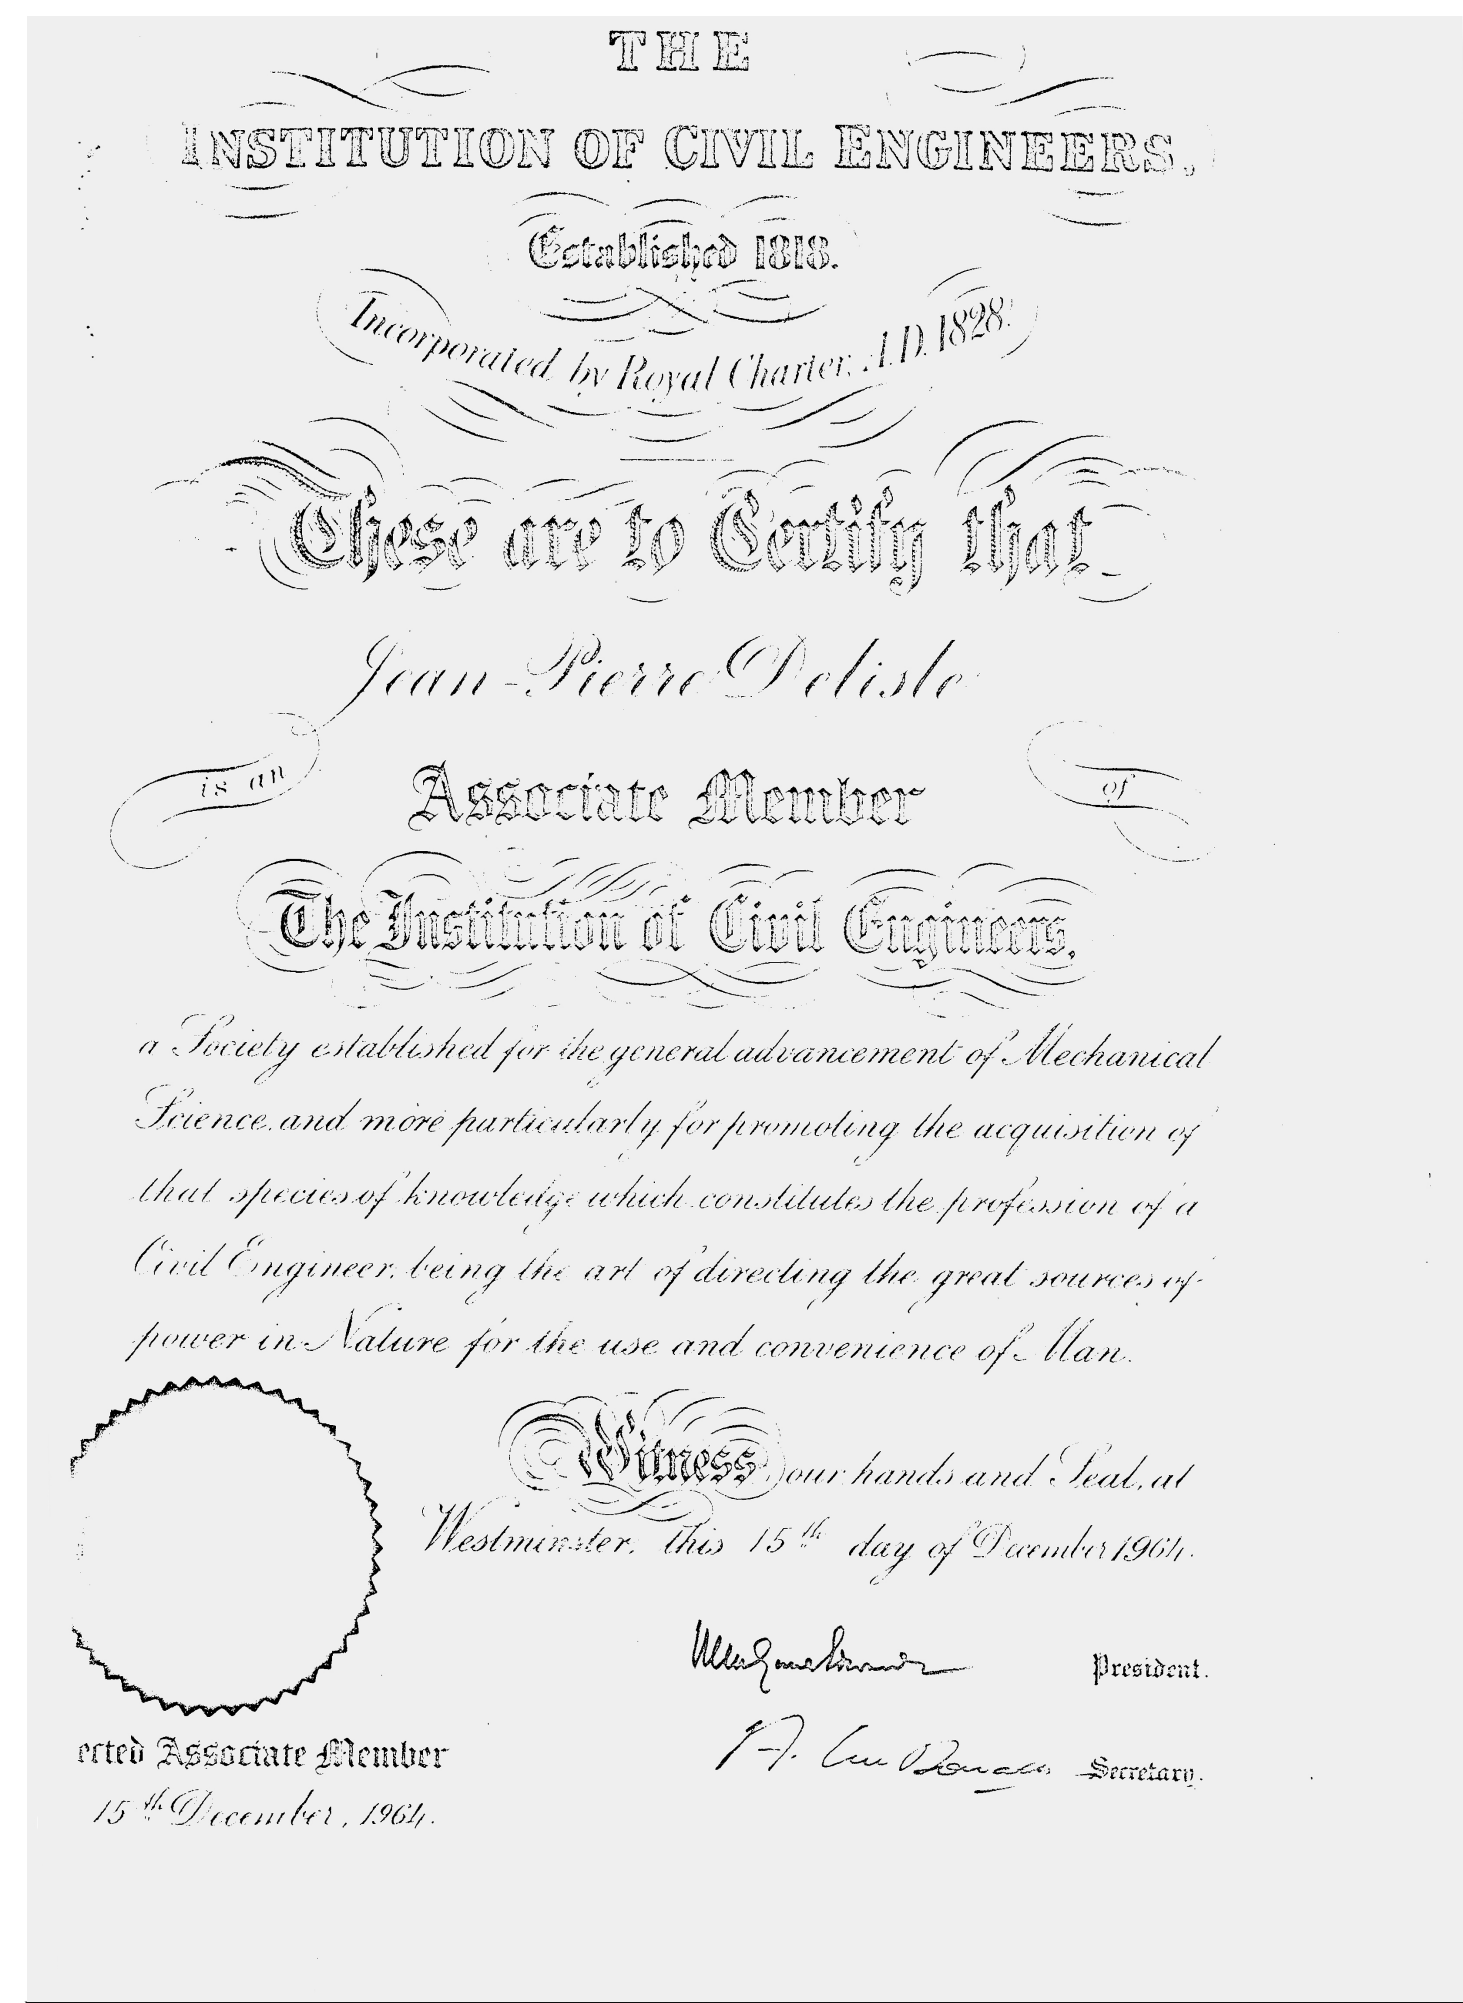 THE
INSTITUTION OF CIVIL ENGINEERS,
Established 1818.
Incorporated by Royal Charter, A.D. 1828.
These are to Certify that
Jean-Pierre Delisle
is an Associate Member of
The Institution of Civil Engineers,
a Society established for the general advancement of Mechanical
Science, and more particularly for promoting the acquisition of
that species of knowledge which constitutes the profession of a
Civil Engineer, being the art of directing the great sources of
power in Nature for the use and convenience of Man.
Witness our hands and Seal, at
Westminster, this 15th day of December 1964.
President.
Secretary.
ected Associate Member
15th December, 1964.